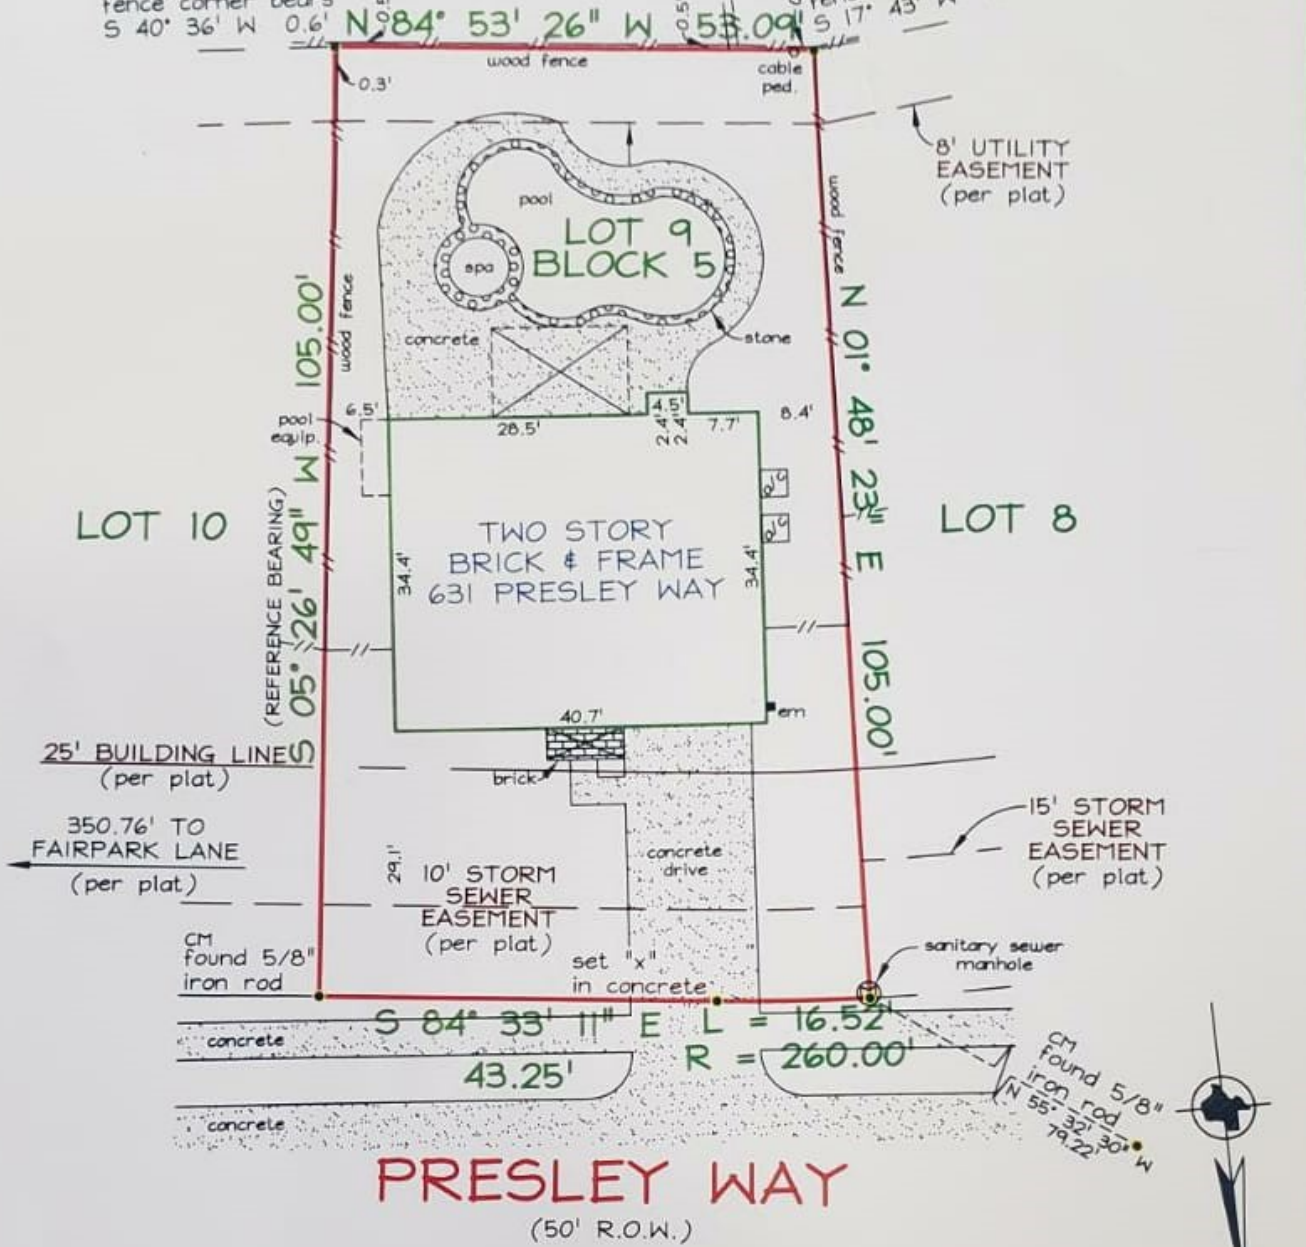 fence corner bears
S 40° 36' W 0.6'
N 84° 53' 26" W 53.09'
S 17° 43' W
wood fence
cable
ped.
0.3'
8' UTILITY
EASEMENT
(per plat)
pool
LOT 9
BLOCK 5
spa
wood fence
wood fence
concrete
stone
S 05° 26' 49" W 105.00'
(REFERENCE BEARING)
N 01° 48' 23" E 105.00'
pool
equip.
6.5'
28.5'
4.5'
2.4'
2.4'
7.7'
8.4'
LOT 10
LOT 8
TWO STORY
BRICK & FRAME
631 PRESLEY WAY
34.4'
34.4'
40.7'
em
brick
25' BUILDING LINE
(per plat)
350.76' TO
FAIRPARK LANE
(per plat)
29.1'
10' STORM
SEWER
EASEMENT
(per plat)
concrete
drive
15' STORM
SEWER
EASEMENT
(per plat)
CM
found 5/8"
iron rod
set "x"
in concrete
sanitary sewer
manhole
S 84° 33' 11" E
43.25'
L = 16.52'
R = 260.00'
concrete
concrete
CM
found 5/8"
iron rod
N 55° 32' 30" W
79.22'
PRESLEY WAY
(50' R.O.W.)